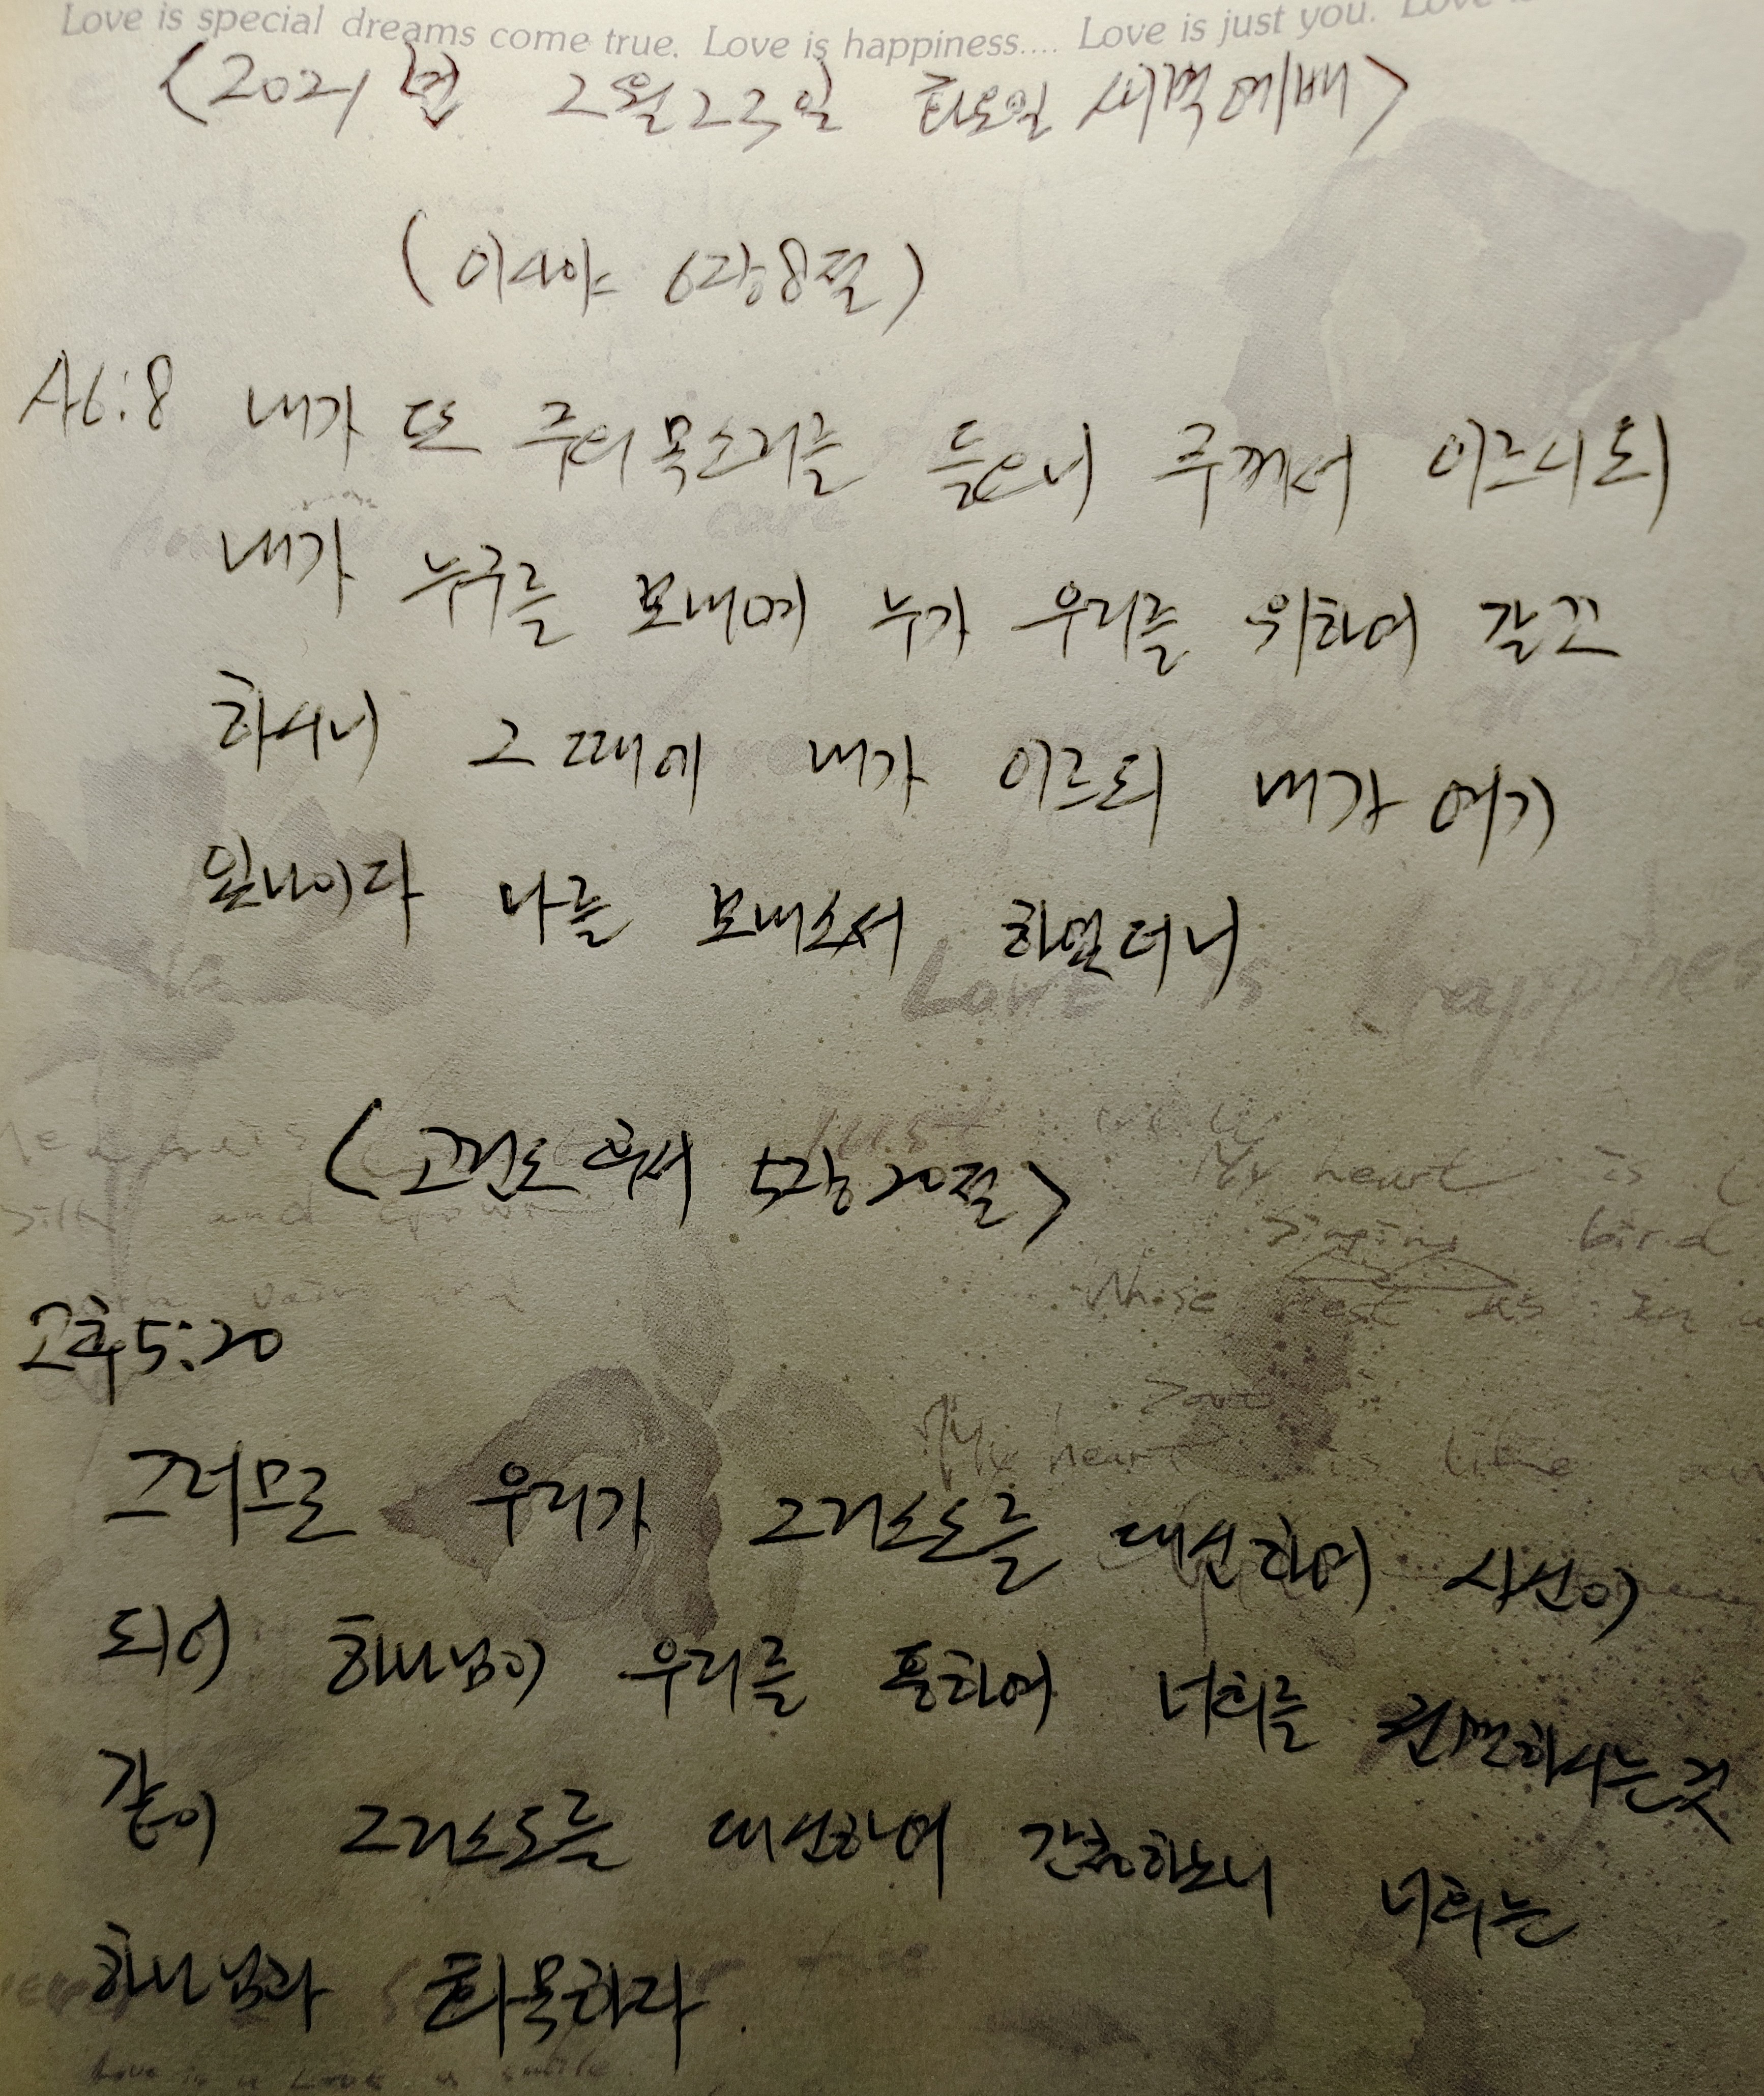 Love is special dreams come true. Love is happiness.... Love is just you. Love
<2021년 2월 23일 화요일 새벽예배>
(이사야 6장 8절)
사6:8 내가 또 주의 목소리를 들으니 주께서 이르시되
내가 누구를 보내며 누가 우리를 위하여 갈꼬
하시니 그 때에 내가 이르되 내가 여기
있나이다 나를 보내소서 하였더니
Love is happiness
Just you
(고린도후서 5장 20절>
My heart is
silk and
singing bird
Whose nest is in a
고후5:20
My heart is like an
그러므로 우리가 그리스도를 대신하여 사신이
되어 하나님이 우리를 통하여 너희를 권면하시는 것
같이 그리스도를 대신하여 간청하노니 너희는
하나님과 화목하라.
Love is a Love a smile